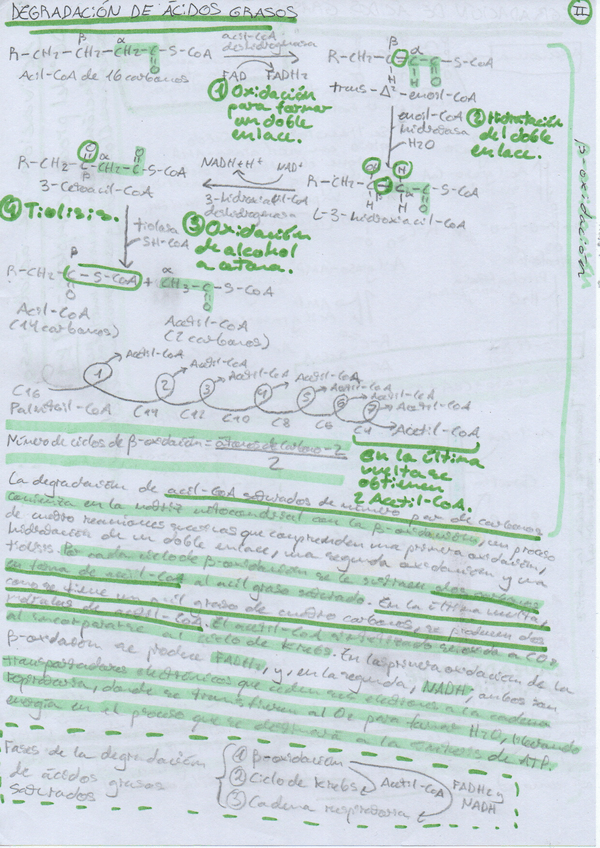 DEGRADACIÓN DE ÁCIDOS GRASOS
II
β α
R-CH2-CH2-CH2-C-S-CoA
O
Acil-CoA de 16 carbonos
acil-CoA
deshidrogenasa
FAD FADH2
① Oxidación
para formar
un doble
enlace.
H
β α
R-CH2-C=C-C-S-CoA
H O
trans-Δ²-enoil-CoA
enoil-CoA
hidratasa
H2O
② Hidratación
del doble
enlace.
β-oxidación
O
α
R-CH2-C-CH2-C-S-CoA
β O
3-Cetoacil-CoA
NADH+H+ NAD+
3-hidroxiacil-CoA
deshidrogenasa
OH H
R-CH2-C-C-C-S-CoA
H H O
L-3-hidroxiacil-CoA
④ Tiolisis.
tiolasa
SH-CoA
③ Oxidación
de alcohol
a cetona.
β α
R-CH2-C-S-CoA + CH3-C-S-CoA
O O
Acil-CoA Acetil-CoA
(14 carbonos) (2 carbonos)
Acetil-CoA Acetil-CoA Acetil-CoA Acetil-CoA Acetil-CoA Acetil-CoA Acetil-CoA
1 2 3 4 5 6 7
C16 C14 C12 C10 C8 C6 C4 Acetil-CoA
Palmitoil-CoA
Número de ciclos de β-oxidación = átomos de carbono - 2
2
En la última
vuelta se
obtienen
2 Acetil-CoA.
La degradación de acil-CoA saturados de número par de carbonos
comienza en la matriz mitocondrial con la β-oxidación, un proceso
de cuatro reacciones sucesivas que comprenden una primera oxidación,
hidratación de un doble enlace, una segunda oxidación y una
tiolisis. Por cada ciclo de β-oxidación se le sustraen dos carbonos
en forma de acetil-CoA al acil graso saturado. En la última vuelta,
como se tiene un acil graso de cuatro carbonos, se producen dos
moléculas de acetil-CoA. El acetil-CoA sintetizado se oxida a CO2
al incorporarse al ciclo de Krebs. En la primera oxidación de la
β-oxidación se produce FADH2, y, en la segunda, NADH, ambos son
transportadores electrónicos que ceden sus electrones a la cadena
respiratoria, donde se transfieren al O2 para formar H2O, liberando
energía en el proceso que se destinará a la síntesis de ATP.
Fases de la degradación
de ácidos grasos
saturados
① β-oxidación
② Ciclo de Krebs
③ Cadena respiratoria
Acetil-CoA
FADH2 y
NADH